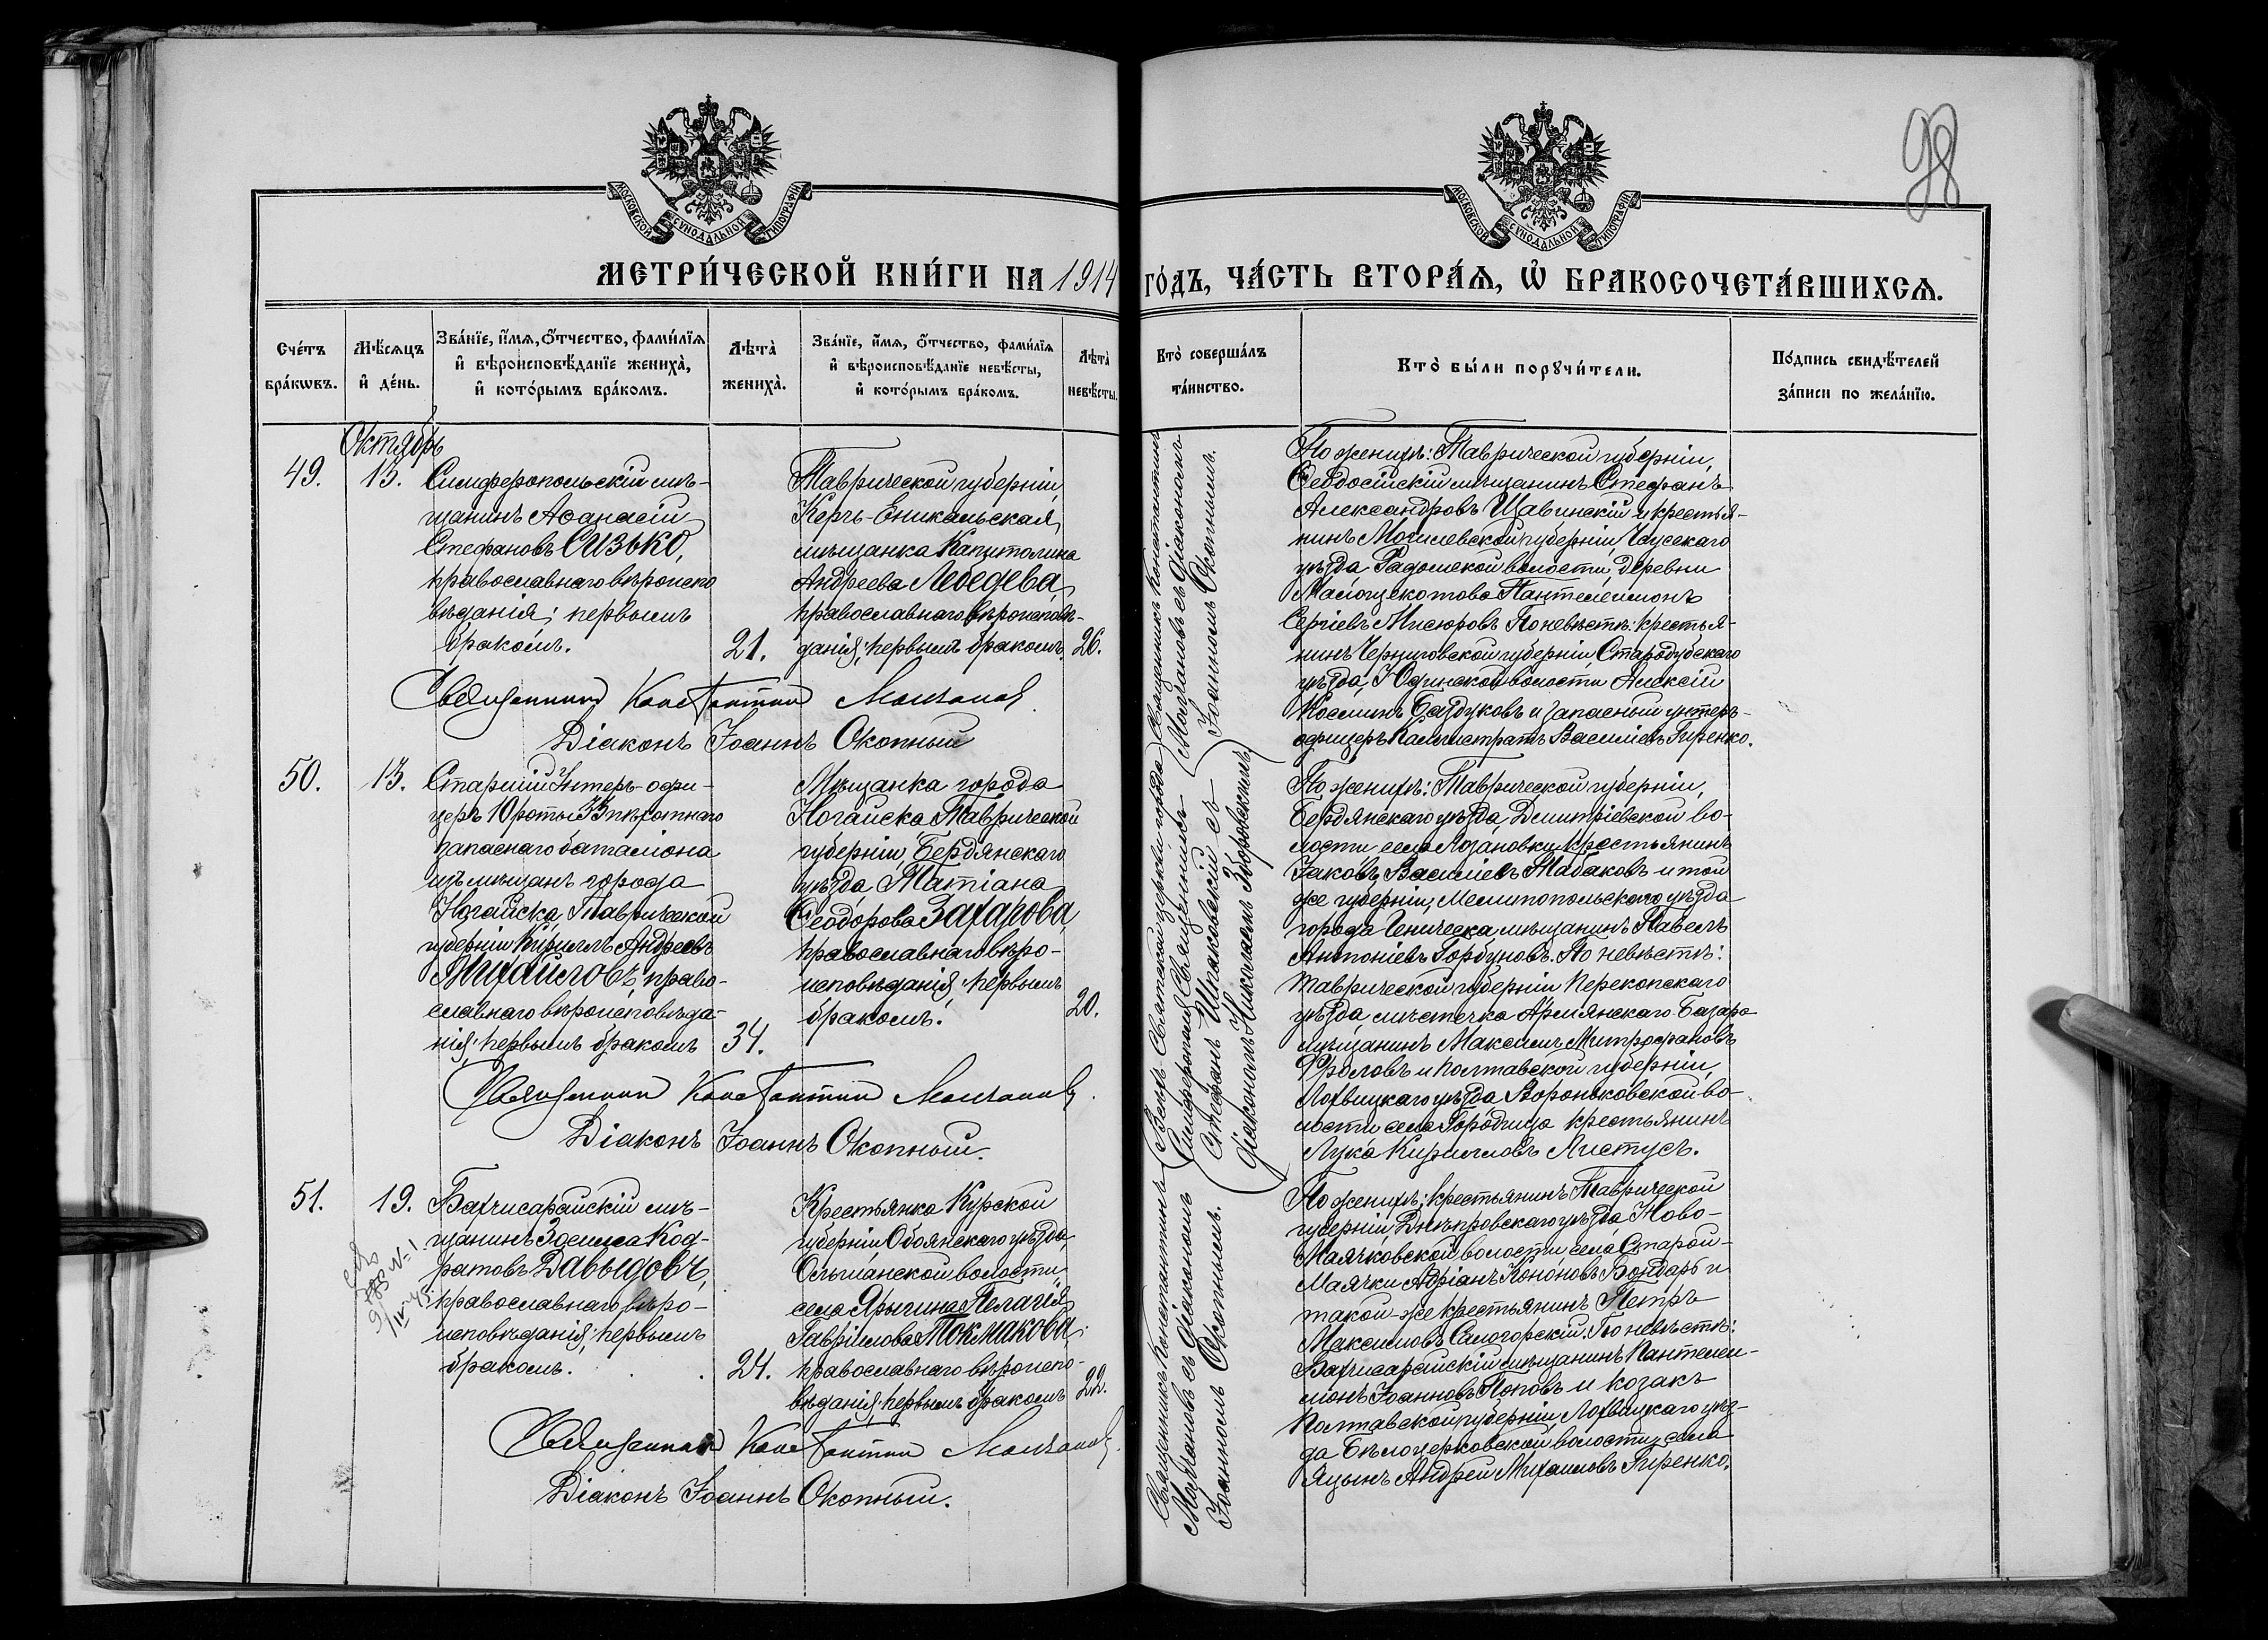 98
МОСКОВСКОЙ СУНОДАЛЬНОЙ ТИПОГРАФІИ
МОСКОВСКОЙ СУНОДАЛЬНОЙ ТИПОГРАФІИ
МЕТРИ́ЧЕСКОЙ КНИ́ГИ НА 1914 ГО́ДЪ, ЧА́СТЬ ВТОРА́Ѧ, Ѽ БРАКОСОЧЕТА́ВШИХСѦ.
Сче́тъ бра́кѡвъ.
Мѣ́сѧцъ и҆ де́нь.
Зва́нїе, и҆́мѧ, ѻ҆́тчество, фами́лїѧ и҆ вѣроисповѣ́данїе жениха̀, и҆ кото́рымъ бра́комъ.
Лѣта̀ жениха̀.
Зва́нїе, и҆́мѧ, ѻ҆́тчество, фами́лїѧ и҆ вѣроисповѣ́данїе невѣ́сты, и҆ кото́рымъ бра́комъ.
Лѣта̀ невѣ́сты.
Кто̀ соверша́лъ та́инство.
Кто̀ бы́ли порꙋчи́тели.
По́дпись свидѣ́телей за́писи по жела́нїю.
Октябрь
49.
13.
Симферопольскій мѣ-
щанинъ Аѳанасій
Стефановъ Сизько,
православнаго вѣроиспо
вѣданія; первымъ
бракомъ.
21.
Таврической губерніи
Керчь-Еникальская
мѣщанка Капитолина
Андреева Лебедева,
православнаго вѣроисповѣ-
данія; первымъ бракомъ.
26.
Священникъ Константинъ
Молчановъ съ діакономъ
Іоанномъ Окопнымъ.
По женихѣ: Таврической губерніи,
Ѳеодосійскій мѣщанинъ Стефанъ
Александровъ Щавинскій и крестья-
нинъ Могилевской губерніи Чаусскаго
уѣзда Радомской волости, деревни
Пантелеимонъ
Сергіевъ Мисюровъ По невѣстѣ: крестья-
нинъ Черниговской губерніи Стародубскаго
уѣзда, волости Алексій
Косминъ и запасный унтеръ-
офицеръ Калистратъ Василіевъ Гиренко.
Священникъ Константинъ Молчановъ
Діаконъ Іоаннъ Окопный
50.
13.
Старшій Унтеръ-офи-
церъ 10 роты 33 пѣхотнаго
запаснаго баталіона
изъ мѣщанъ города
Ногайска, Таврической
губерніи Кириллъ Андреевъ
Михайловъ, право-
славнаго вѣроисповѣда-
нія; первымъ бракомъ
34.
Мѣщанка города
Ногайска Таврической
губерніи, Бердянскаго
уѣзда Татіана
Ѳеодорова Захарова,
православнаго вѣро-
исповѣданія; первымъ
бракомъ.
20.
Симферополя Священникъ
Стефанъ Шпаковскій съ
діакономъ Николаемъ Зборовскимъ
По женихѣ: Таврической губерніи,
Бердянскаго уѣзда, Димитріевской во-
лости села Лозановки крестьянинъ
Іаковъ Василіевъ Табаковъ и той
же губерніи, Мелитопольскаго уѣзда
города Геническа мѣщанинъ Павелъ
Антоніевъ Горбуновъ. По невѣстѣ:
Таврической губерніи Перекопскаго
уѣзда, мѣстечка Армянскаго Базара
мѣщанинъ Максимъ Митрофановъ
Фроловъ и Полтавской губерніи,
Лохвицкаго уѣзда Вороньковской во-
лости села Городища крестьянинъ
Лука Кирилловъ Листусъ.
Священникъ Константинъ Молчановъ.
Діаконъ Іоаннъ Окопный.
51.
19.
Бахчисарайскій мѣ-
щанинъ Зосима Код-
ратовъ Давыдовъ,
православнаго вѣро-
исповѣданія; первымъ
бракомъ.
24.
Крестьянка Курской
губерніи Обоянскаго уѣзда,
Ольшанской волости
села Ярыгина Пелагія
Гавріилова Токмакова,
православнаго вѣроиспо-
вѣданія; первымъ бракомъ
22.
Священникъ Константинъ
Молчановъ съ діакономъ
Іоанномъ Окопнымъ.
По женихѣ: крестьянинъ Таврической
губерніи, Днѣпровскаго уѣзда Ново-
Маячковской волости села Старой-
Маячки Адріанъ Кононовъ Бондарь и
такой-же крестьянинъ Петръ
Максимовъ Самогорскій. По невѣстѣ:
Бахчисарайскій мѣщанинъ Пантелей-
монъ Іоанновъ Поповъ и козакъ
Полтавской губерніи Лохвицкаго уѣз-
да Бѣлоцерковской волости села
Яцынъ Андрей Михаиловъ Гиренко.
Священникъ Константинъ Молчановъ.
Діаконъ Іоаннъ Окопный.